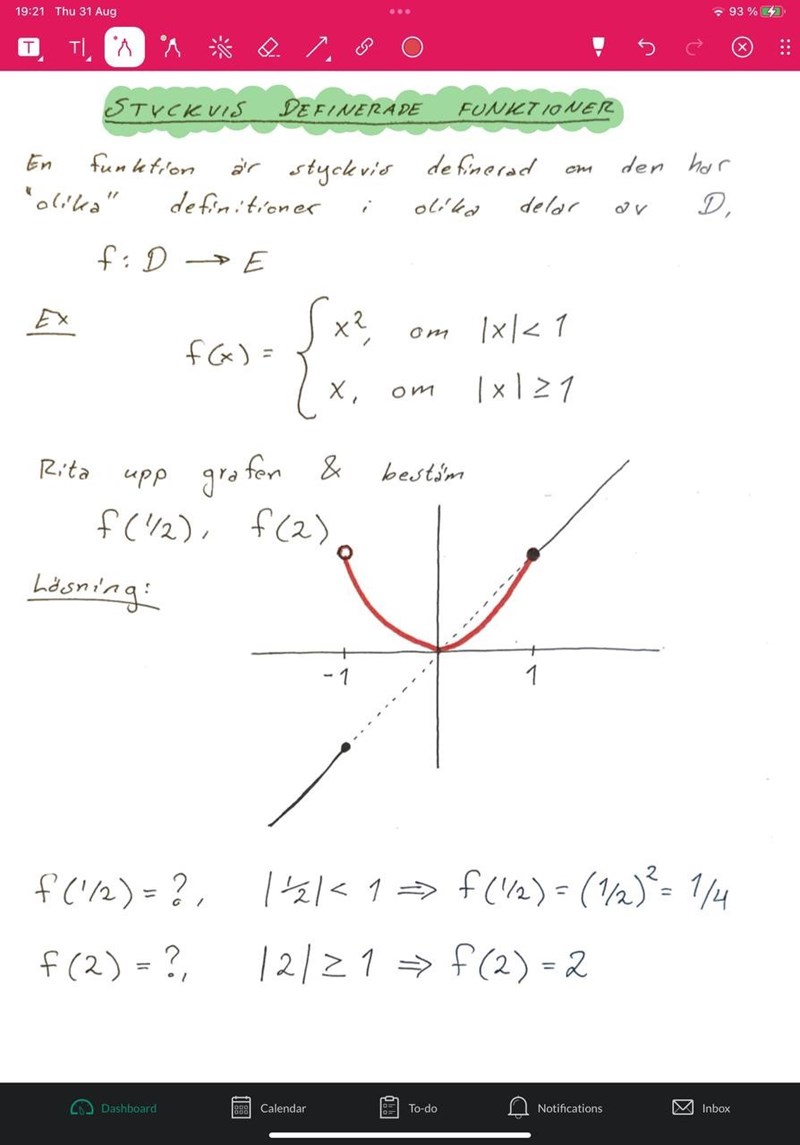 19:21 Thu 31 Aug 93 %
T T
STYCKVIS DEFINERADE FUNKTIONER
En funktion är styckvis definerad om den har
"olika" definitioner i olika delar av D,
f: D → E
Ex
f(x) = { x², om |x| < 1
x, om |x| ≥ 1
Rita upp grafen & bestäm
f(1/2), f(2)
Lösning:
-1 1
f(1/2) = ?, |1/2| < 1 ⇒ f(1/2) = (1/2)² = 1/4
f(2) = ?, |2| ≥ 1 ⇒ f(2) = 2
Dashboard Calendar To-do Notifications Inbox